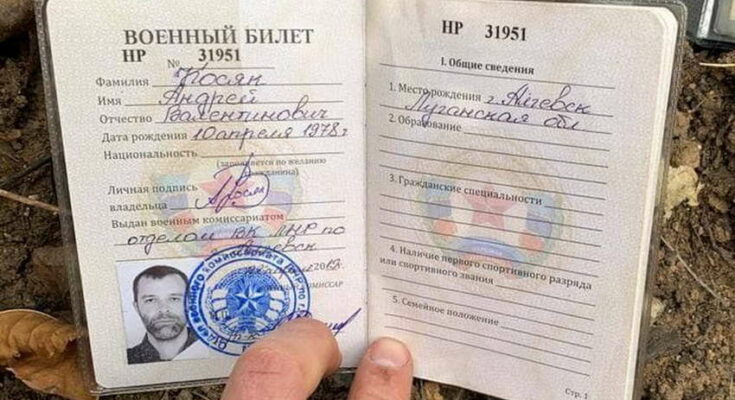 ВОЕННЫЙ БИЛЕТ
НР № 31951
Фамилия Посян
Имя Андрей
Отчество Валентинович
Дата рождения 10 апреля 1978 г
Национальность
(заполняется по желанию
гражданина)
Личная подпись
владельца
Выдан военным комиссариатом
отделом ВК ЛНР по
Алчевск
КОМИССАР
НР 31951
I. Общие сведения
1. Место рождения г. Алчевск
Луганская обл
2. Образование
3. Гражданские специальности
4. Наличие первого спортивного разряда
или спортивного звания
5. Семейное положение
Стр. 1